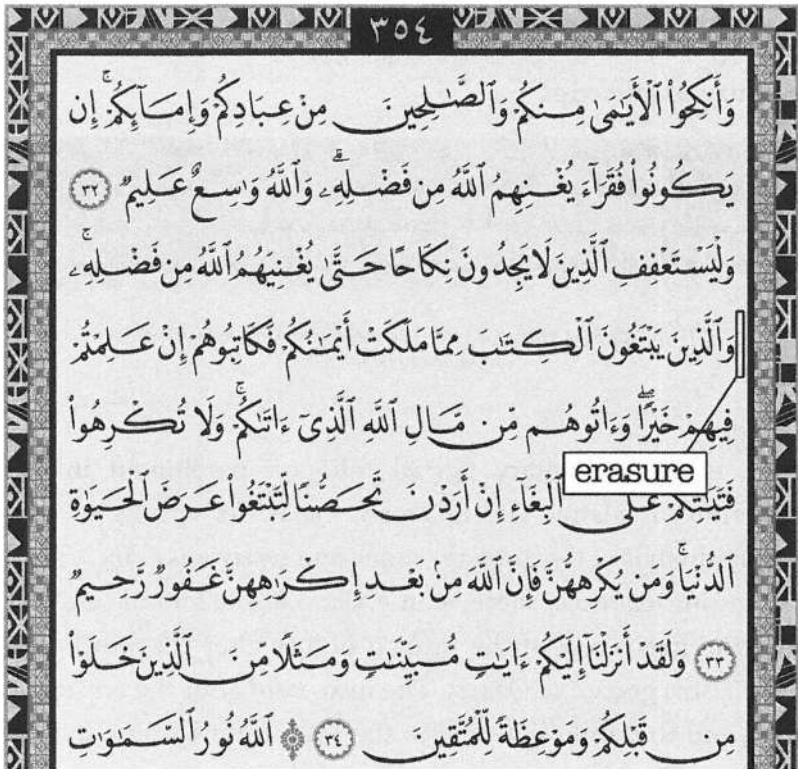 ٣٥٤
وَأَنكِحُوا۟ ٱلْأَيَـٰمَىٰ مِنكُمْ وَٱلصَّـٰلِحِينَ مِنْ عِبَادِكُمْ وَإِمَآئِكُمْ ۚ إِن
يَكُونُوا۟ فُقَرَآءَ يُغْنِهِمُ ٱللَّهُ مِن فَضْلِهِۦ ۗ وَٱللَّهُ وَٰسِعٌ عَلِيمٌ ٣٢
وَلْيَسْتَعْفِفِ ٱلَّذِينَ لَا يَجِدُونَ نِكَاحًا حَتَّىٰ يُغْنِيَهُمُ ٱللَّهُ مِن فَضْلِهِۦ ۗ
وَٱلَّذِينَ يَبْتَغُونَ ٱلْكِتَـٰبَ مِمَّا مَلَكَتْ أَيْمَـٰنُكُمْ فَكَاتِبُوهُمْ إِنْ عَلِمْتُمْ
فِيهِمْ خَيْرًا ۖ وَءَاتُوهُم مِّن مَّالِ ٱللَّهِ ٱلَّذِىٓ ءَاتَىٰكُمْ ۚ وَلَا تُكْرِهُوا۟
erasure
فَتَيَـٰتِكُمْ عَلَى ٱلْبِغَآءِ إِنْ أَرَدْنَ تَحَصُّنًا لِّتَبْتَغُوا۟ عَرَضَ ٱلْحَيَوٰةِ
ٱلدُّنْيَا ۚ وَمَن يُكْرِههُّنَّ فَإِنَّ ٱللَّهَ مِنۢ بَعْدِ إِكْرَٰهِهِنَّ غَفُورٌ رَّحِيمٌ
٣٣ وَلَقَدْ أَنزَلْنَآ إِلَيْكُمْ ءَايَـٰتٍ مُّبَيِّنَـٰتٍ وَمَثَلًا مِّنَ ٱلَّذِينَ خَلَوْا۟
مِن قَبْلِكُمْ وَمَوْعِظَةً لِّلْمُتَّقِينَ ٣٤ ۞ ٱللَّهُ نُورُ ٱلسَّمَـٰوَٰتِ